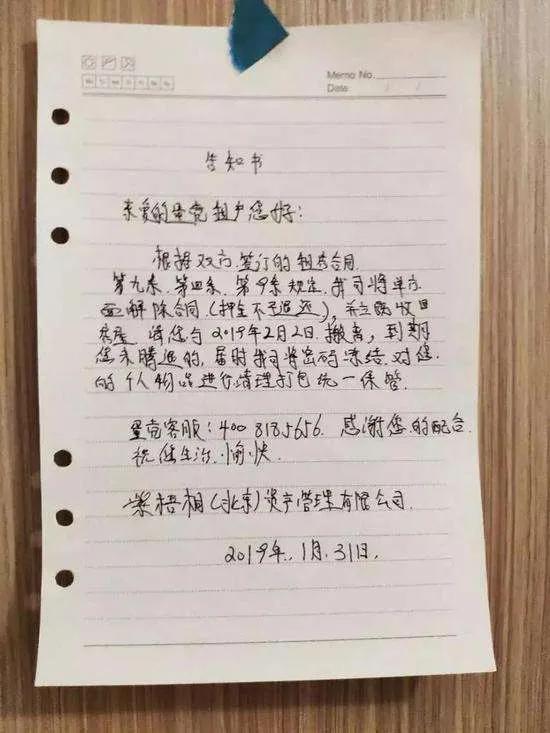 Memo No.
Date / /
告知书
亲爱的蛋壳租户您好:
根据双方签订的租房合同
第九条、第四条、第9条规定,我司将单方
面解除合同(押金不予退还),并立酷收回
房屋 请您与2019年2月2日搬离,到期
您未腾退的,届时我司将密码冻结.对您
的个人物品进行清理打包统一保管.
蛋壳客服:400 8185656. 感谢您的配合
祝您生活.愉快.
紫梧桐(北京)资产管理有限公司.
2019年.1月.31日.